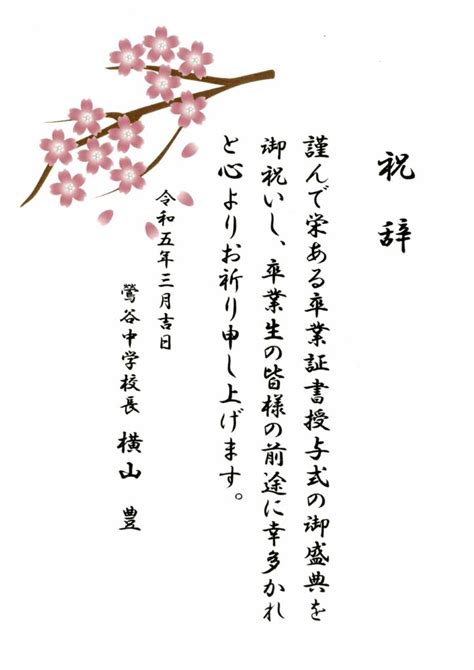 祝辞
謹んで栄ある卒業証書授与式の御盛典を
御祝いし、卒業生の皆様の前途に幸多かれ
と心よりお祈り申し上げます。
令和五年三月吉日
鶯谷中学校長 横山 豊